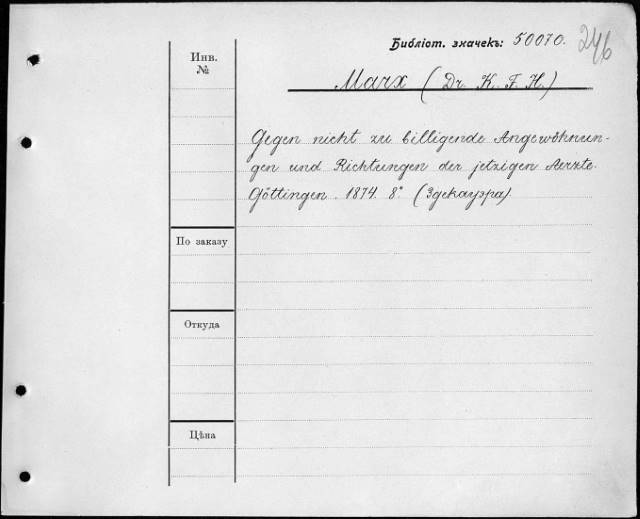 Библіот. значекъ: 50070.
246
Инв.
№
Marx (Dr. K. F. H.)
Gegen nicht zu billigende Angewöhnun-
gen und Richtungen der jetzigen Aerzte.
Göttingen. 1874. 8°. (Здекауэра)
По заказу
Откуда
Цѣна